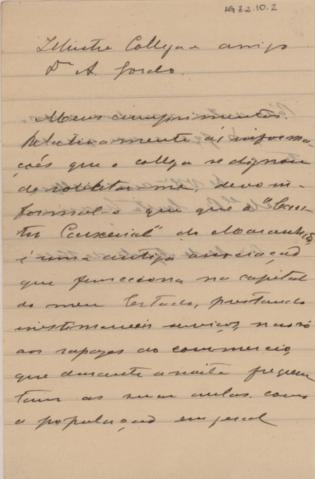 1932.10.2
Illustre Collega e amigo
Dr A. Gordo.
Meus cumprimentos
Relativamente ás informa-
ções que o collega se dignou
de solicitar-me, devo in-
formal-o que que a "Cen-
tro Caixeiral" do Maranhão
é uma antiga associação
que funcciona na capital
do meu Estado, prestando
inestimaveis serviços não só
aos rapazes do commercio,
que durante a noite frequen-
tam as suas aulas, como
a população em geral